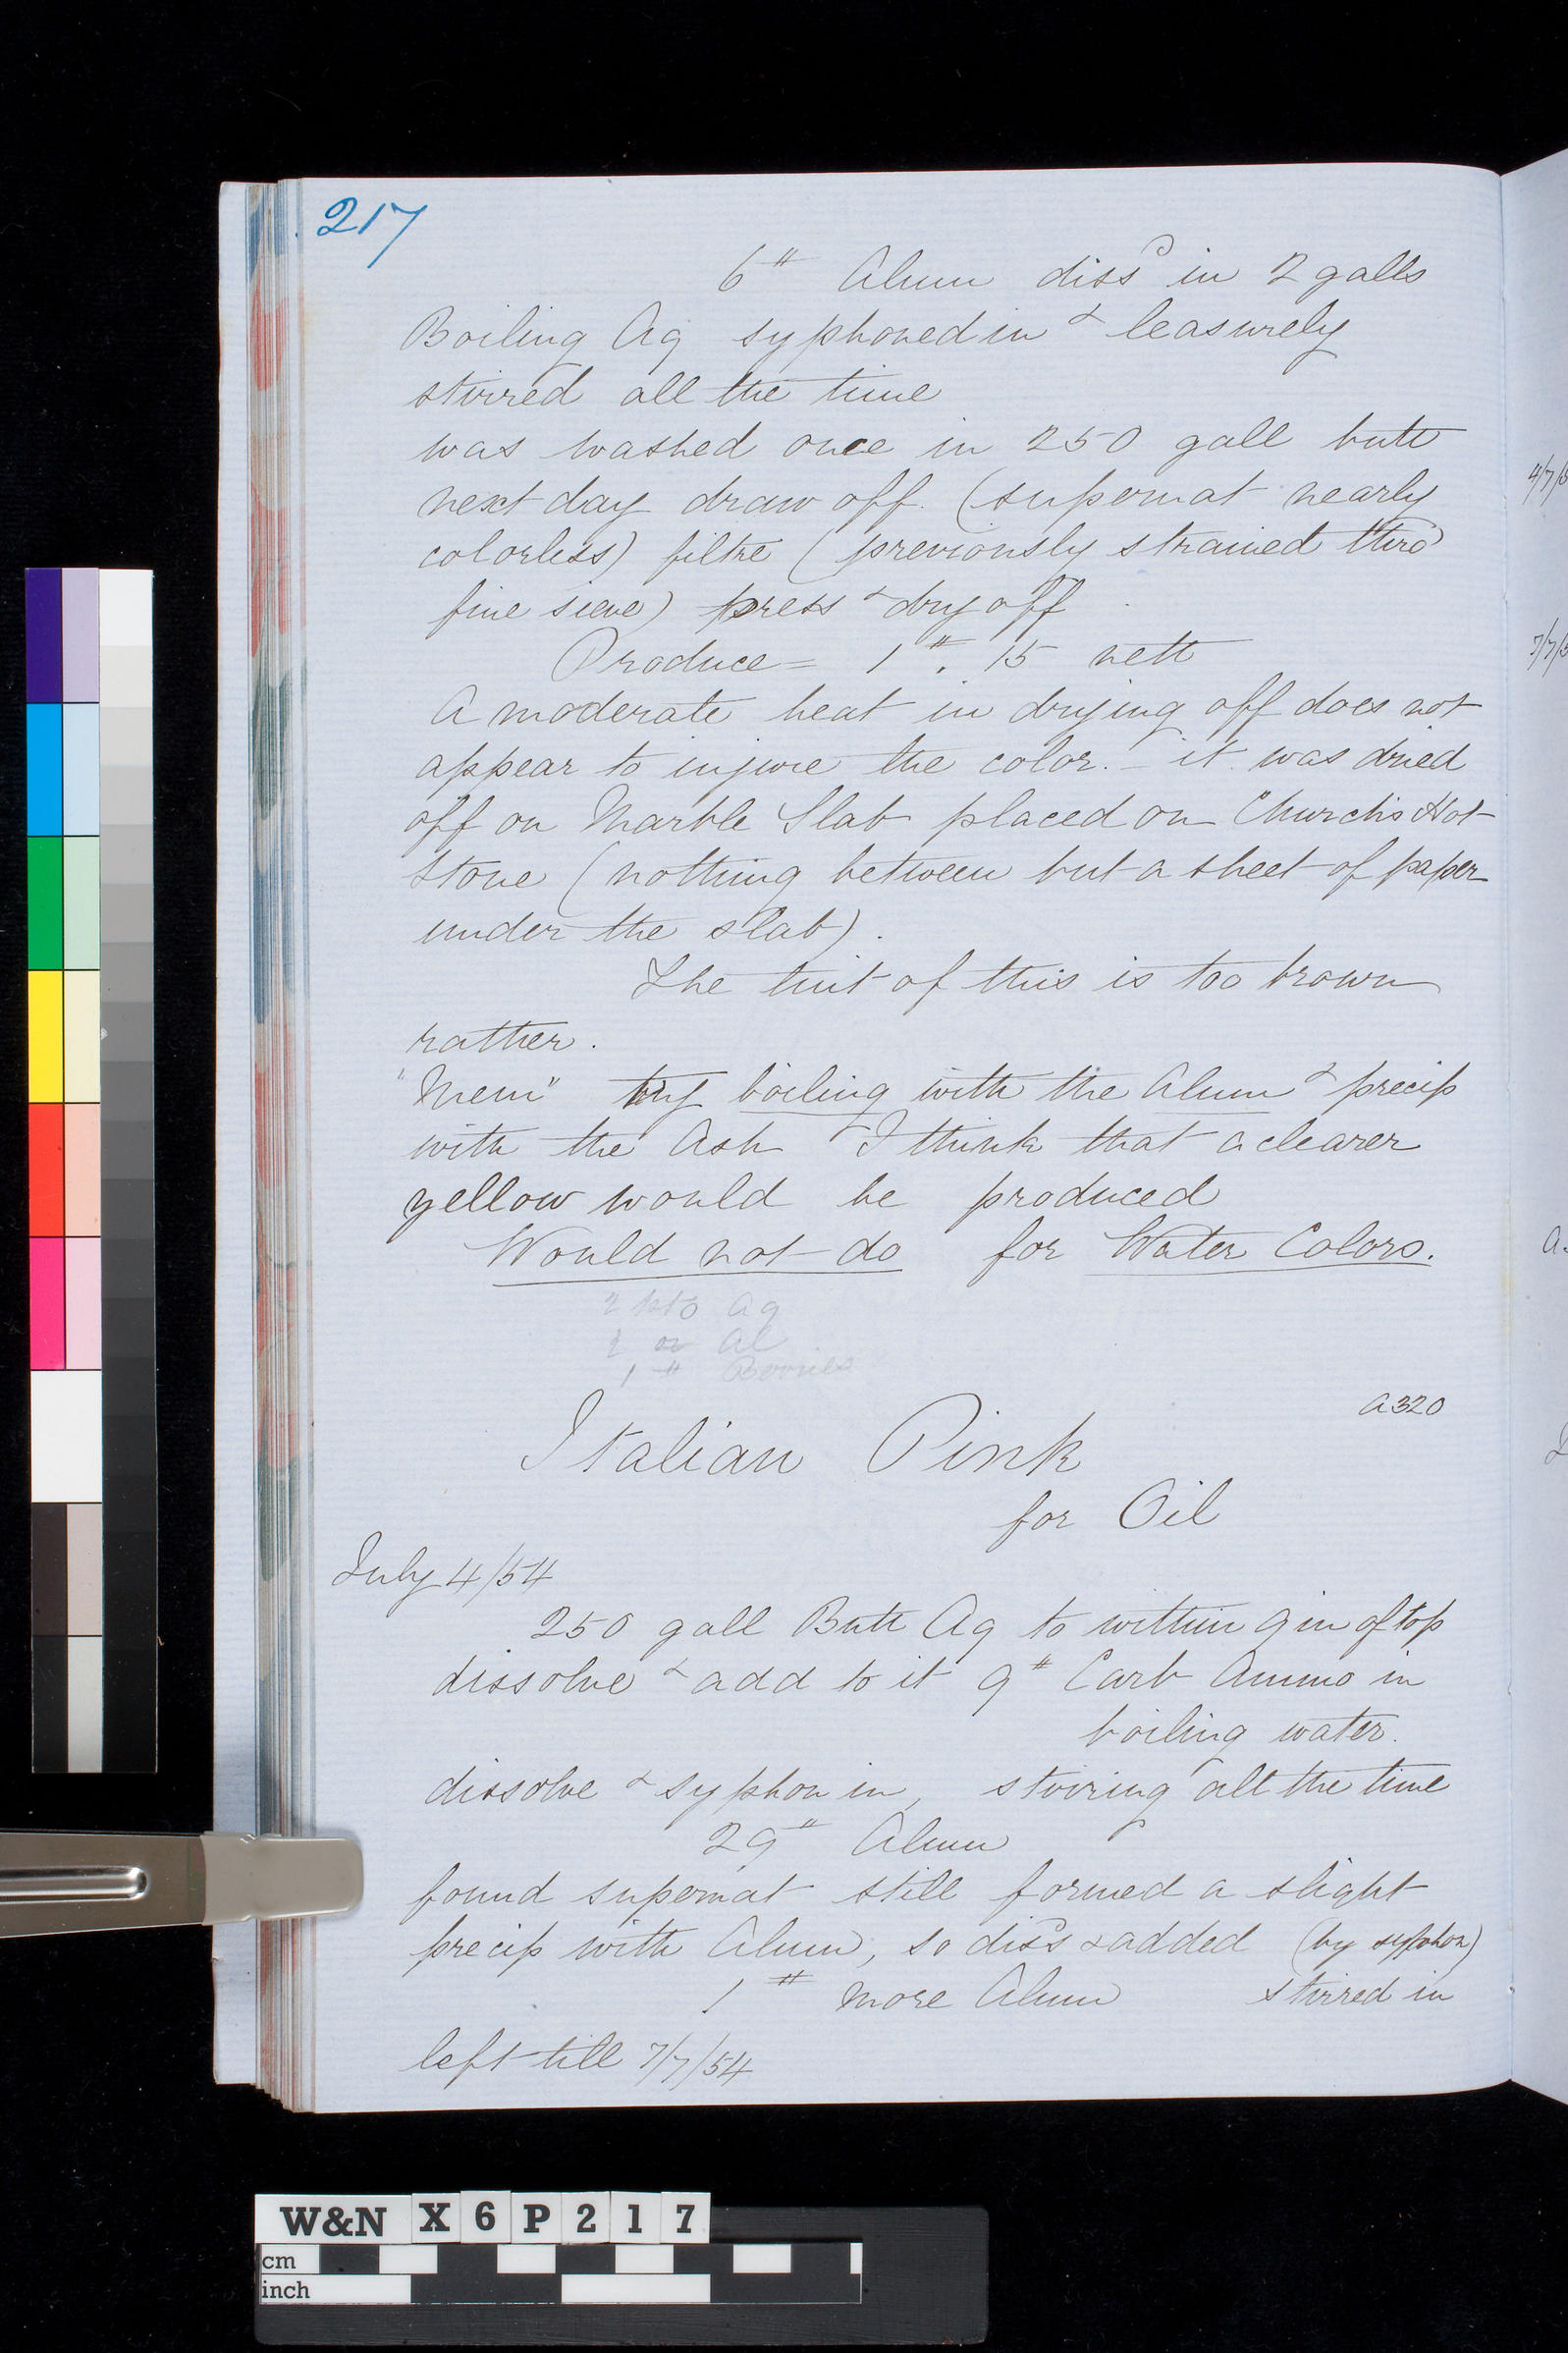 217
6 # Alum diss^d in 2 galls
Boiling Aq syphoned in & leasurely
stirred all the time
was washed once in 250 gall butt
next day draw off. (supernat nearly
colorless) filtre (previously strained thro
fine sieve) press & dry off
Produce = 1 #. 15 nett
A moderate heat in drying off does not
appear to injure the color. – it was dried
off on Marble Slab placed on Church's Hot
Stone (nothing between but a sheet of paper
under the slab).
The tint of this is too brown
rather.
"Mem" try boiling with the Alum & precip
with the Ash I think that a clearer
yellow would be produced
Would not do for Water Colors.
Aq
1 # Berries
A320
Italian Pink
for Oil
July 4/54
250 gall Butt Aq to within 9 in of top
dissolve & add to it 9 # Carb Ammo in
boiling water.
dissolve & syphon in, stirring all the time
29 # Alum
found supernat still formed a slight
precip with Alum, so diss^d & added (by syphon)
1 # more Alum stirred in
left till 7/7/54
W&N X6P217
cm
inch